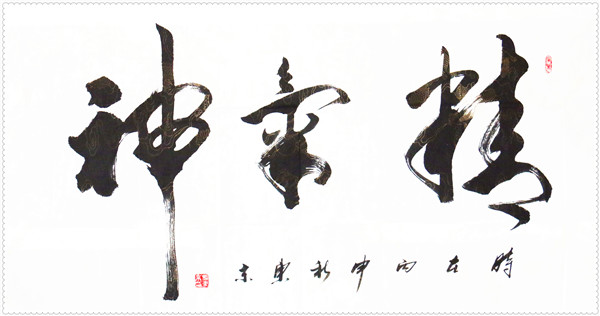 精氣神
時在丙申秋